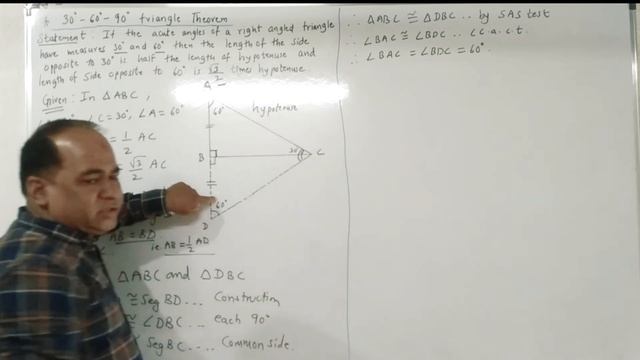 30° - 60° - 90° triangle Theorem
Statement : If the acute angles of a right angled triangle
have measures 30° and 60° then the length of the side
opposite to 30° is half the length of hypotenuse and
length of side opposite to 60° is √3/2 times hypotenuse.
Given : In △ABC,
∠C = 30°, ∠A = 60°
= 1/2 AC
√3/2 AC
A
60°
hypotenuse
B
30°
C
60°
D
AB = BD
i.e. AB = 1/2 AD
△ABC and △DBC
≅ seg BD ... Construction
≅ ∠DBC ... each 90°
≅ seg BC ... Common side.
∴ △ABC ≅ △DBC .. by SAS test
∴ ∠BAC ≅ ∠BDC .. c.a.c.t.
∴ ∠BAC = ∠BDC = 60°